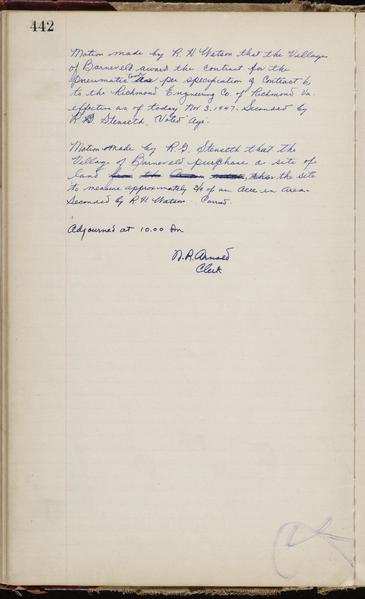 442
Motion made by R H Watson that the Village
of Barneveld award the contract for the
pneumatic Tank per specification of Contract 6
to the Richmond Engineering Co of Richmond Va.
effective as of today Nov 3, 1947. Seconded by
R G. Stenseth. Voted Aye.
Motion made by R. G. Stenseth that the
Village of Barneveld purchase a site of
land the site
to measure approximately of an Acre in area.
Seconded by R H Watson. Carried.
Adjourned at 10.00 Pm
N. A. Arneson
Clerk